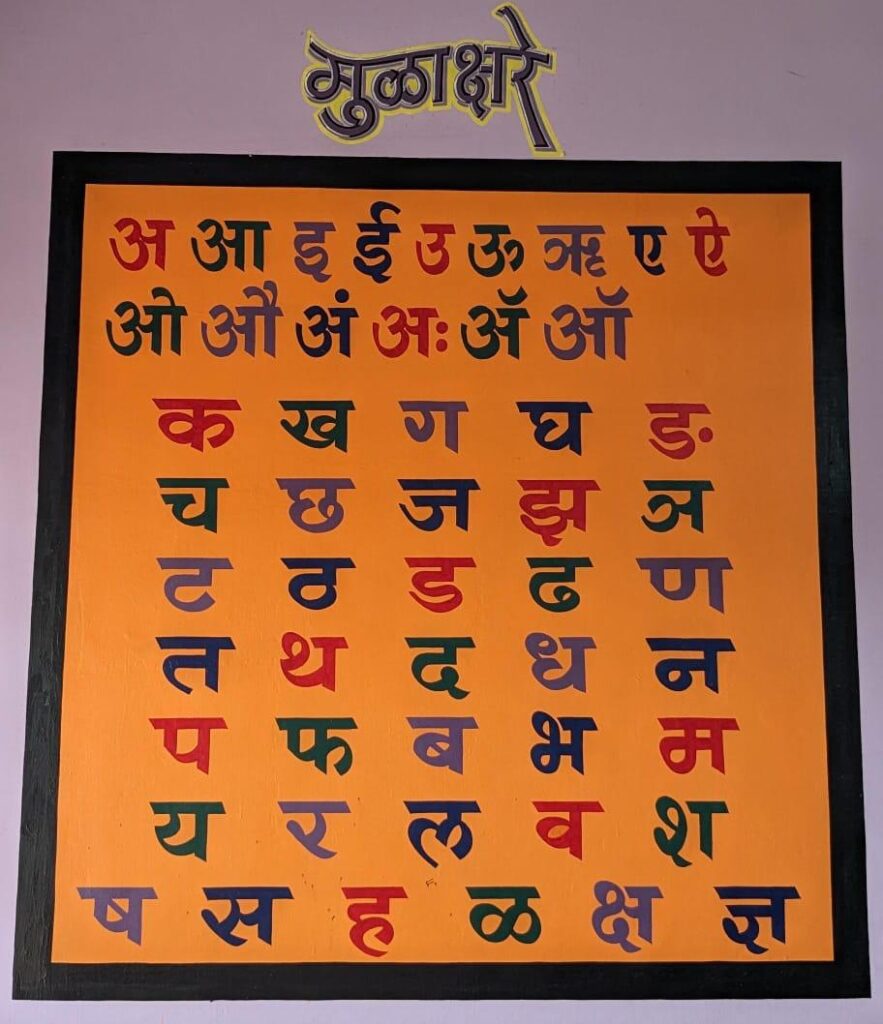 मुळाक्षरे
अ आ इ ई उ ऊ ऋ ए ऐ
ओ औ अं अः ॲ ऑ
क ख ग घ ङ
च छ ज झ ञ
ट ठ ड ढ ण
त थ द ध न
प फ ब भ म
य र ल व श
ष स ह ळ क्ष ज्ञ